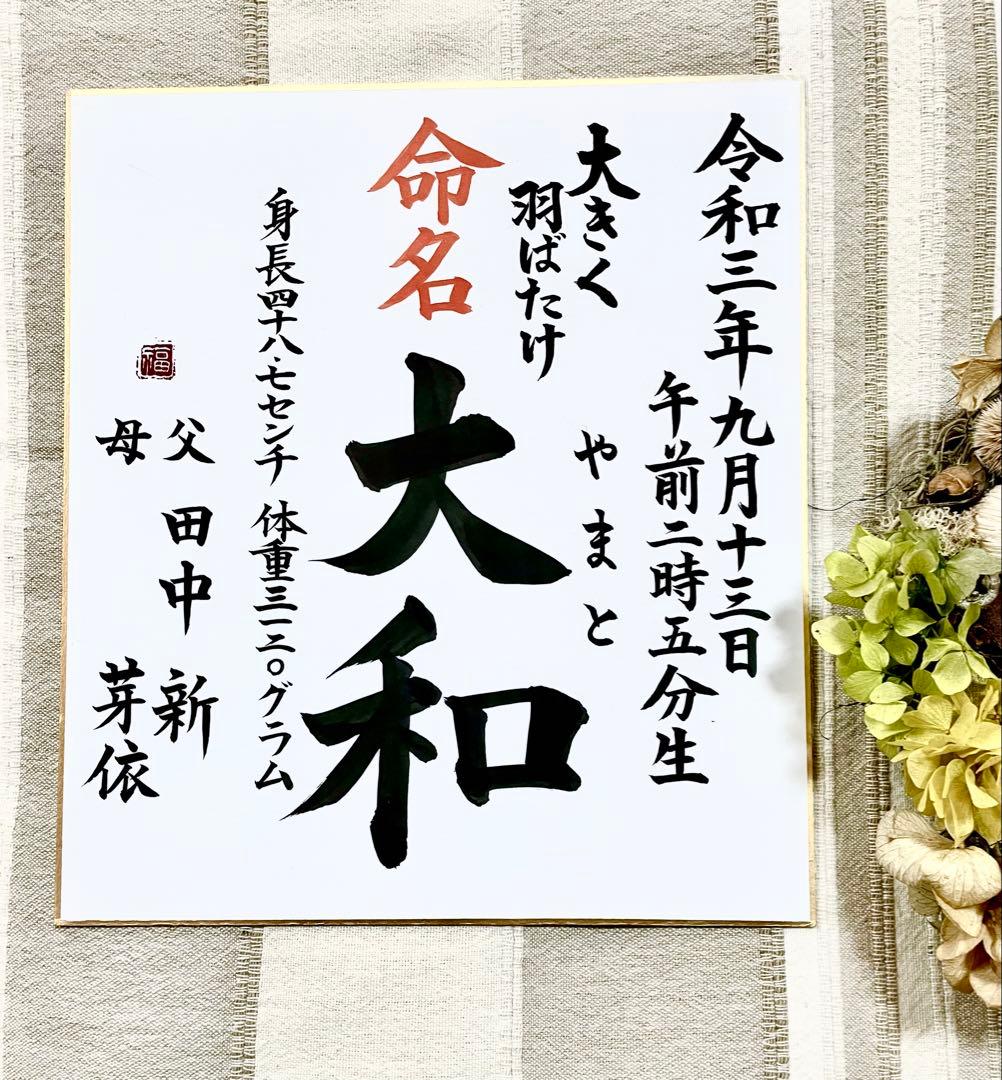 令和三年九月十三日
午前二時五分生
大きく
羽ばたけ
やまと
命名
大和
身長四十八・七センチ 体重三一二〇グラム
父 田中 新
母 芽依
福